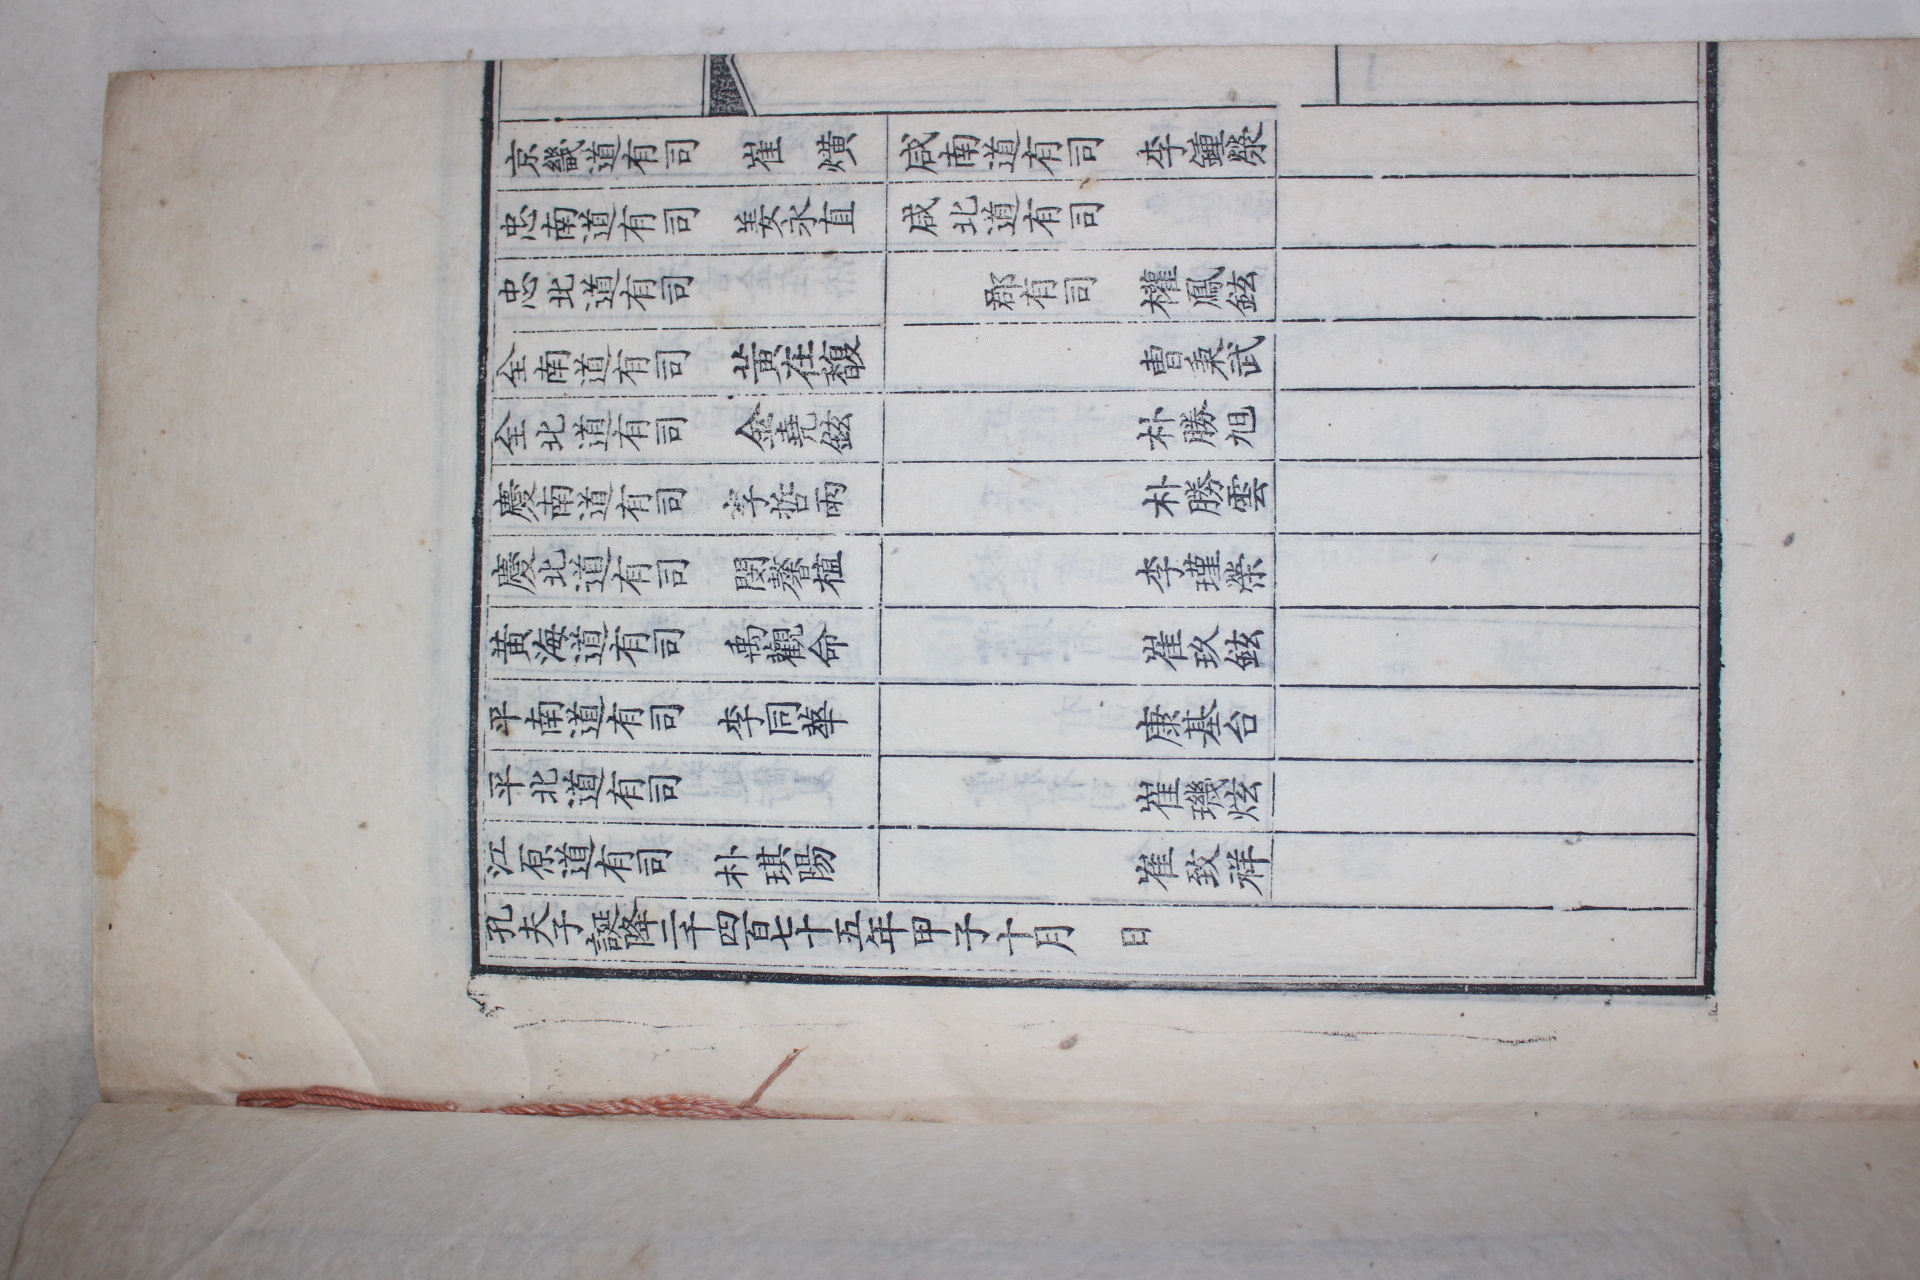 京畿道有司 崔 熿
忠南道有司 姜永直
忠北道有司
全南道有司 黃在馥
全北道有司 金堯鉉
慶南道有司 李哲雨
慶北道有司 閔馨植
黃海道有司 禹觀命
平南道有司 李同華
平北道有司
江原道有司 朴琪陽
咸南道有司 李鍾榮
咸北道有司
郡有司 權鳳鉉
曺秉武
朴勝旭
朴勝雲
李瑾榮
崔玖鉉
康基台
崔璣炫
崔致祥
孔夫子誕降二千四百七十五年甲子十月 日